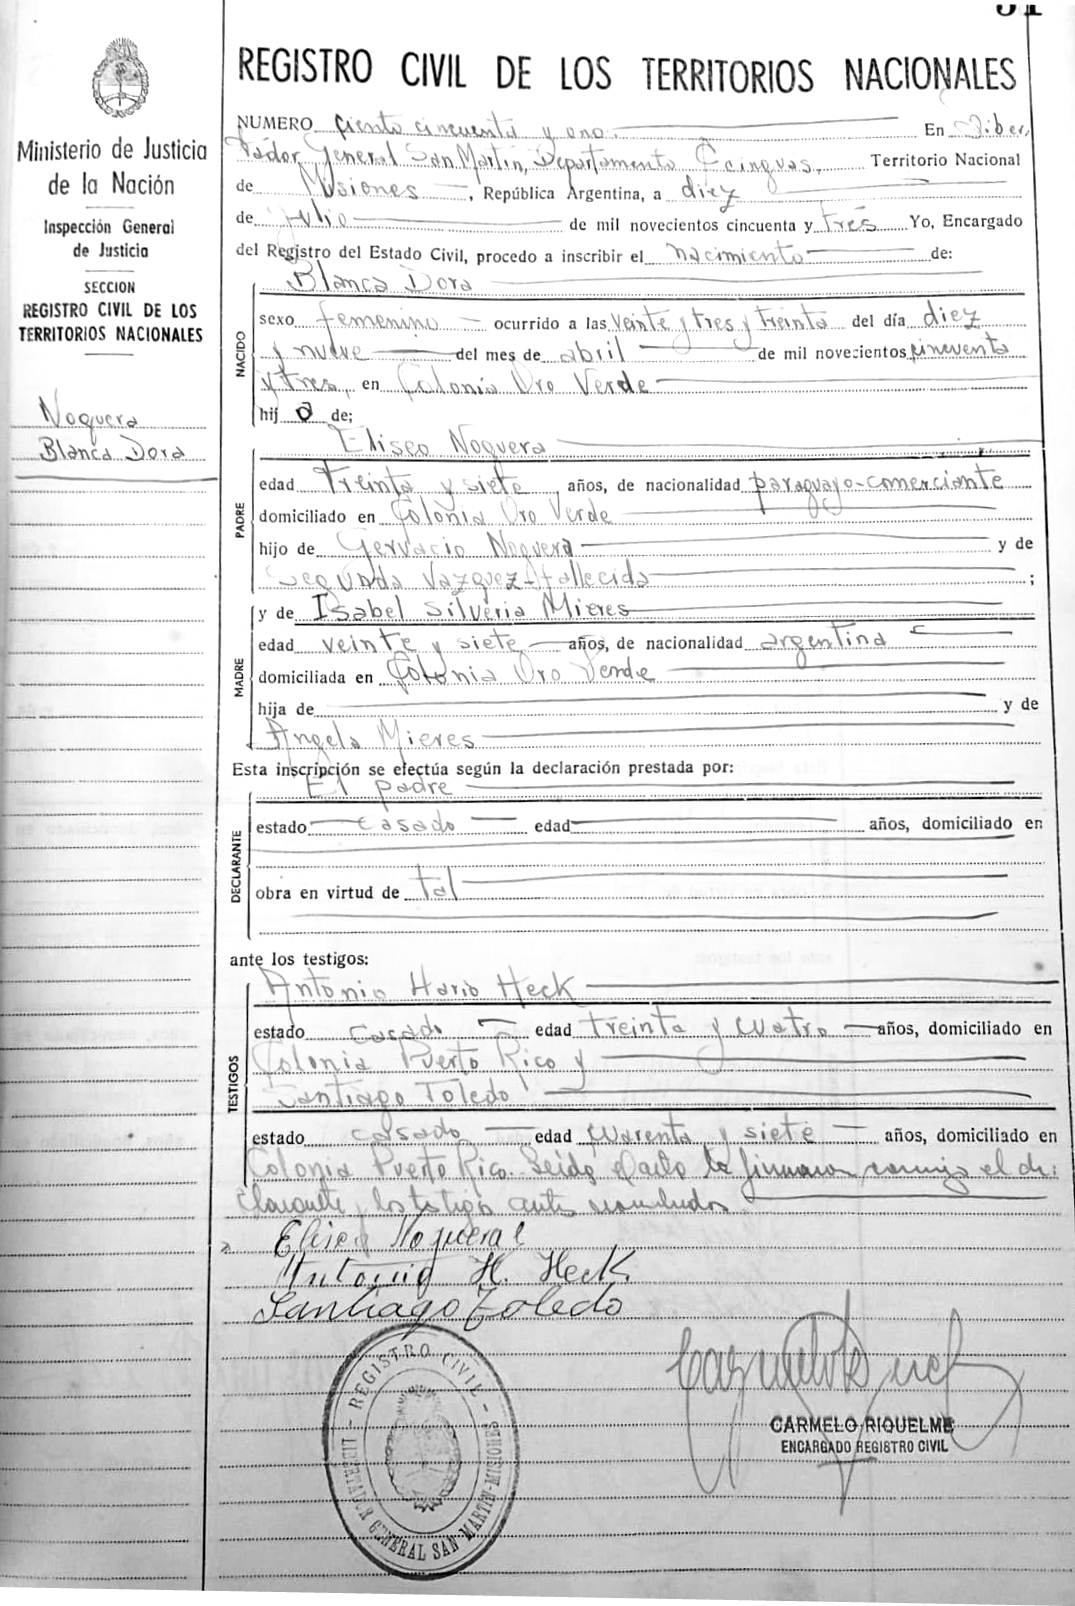 51
Ministerio de Justicia
de la Nación
Inspección General
de Justicia
SECCION
REGISTRO CIVIL DE LOS
TERRITORIOS NACIONALES
Noguera
Blanca Dora
REGISTRO CIVIL DE LOS TERRITORIOS NACIONALES
NUMERO ciento cincuenta y uno. En Liber
tador General San Martín, Departamento Cainguas, Territorio Nacional
de Misiones, República Argentina, a diez
de julio de mil novecientos cincuenta y tres Yo, Encargado
del Registro del Estado Civil, procedo a inscribir el nacimiento de:
NACIDO
Blanca Dora
sexo femenino ocurrido a las veinte y tres y treinta del día diez
y nueve del mes de abril de mil novecientos cincuenta
y tres, en Colonia Oro Verde
hij a de;
PADRE
Eliseo Noguera
edad treinta y siete años, de nacionalidad paraguayo-comerciante
domiciliado en Colonia Oro Verde
hijo de Gervacio Noguera y de
Segunda Vazquez-fallecida ;
MADRE
y de Isabel Silveria Mieres
edad veinte y siete años, de nacionalidad argentina
domiciliada en Colonia Oro Verde
hija de y de
Angela Mieres
Esta inscripción se efectúa según la declaración prestada por:
DECLARANTE
El padre
estado casado edad años, domiciliado en
obra en virtud de tal
ante los testigos:
TESTIGOS
Antonio Hario Heck
estado casado edad treinta y cuatro años, domiciliado en
Colonia Puerto Rico y
Santiago Toledo
estado casado edad cuarenta y siete años, domiciliado en
Colonia Puerto Rico. Leida el acta la firmaron conmigo el de
clarante y los testigos antes nombrados.
Eliseo Noguera
Antonio H. Heck
Santiago Toledo
REGISTRO CIVIL - LIBERTADOR GENERAL SAN MARTIN-MISIONES
CARMELO RIQUELME
ENCARGADO REGISTRO CIVIL